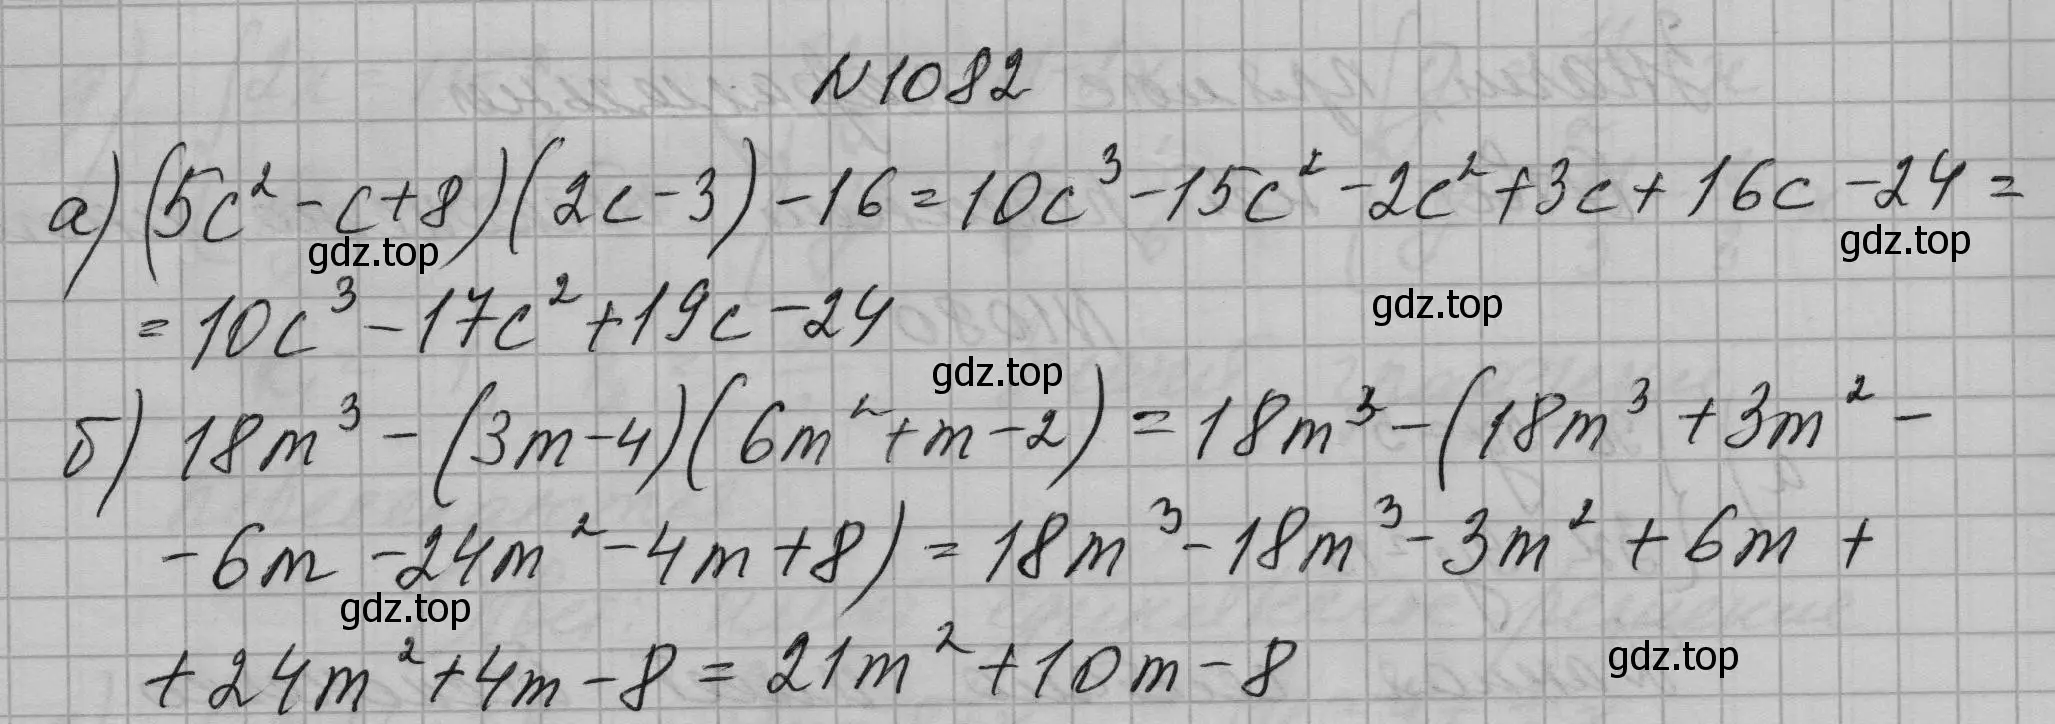 N1082
а) (5c² - c + 8)(2c - 3) - 16 = 10c³ - 15c² - 2c² + 3c + 16c - 24 =
gdz.top
gdz.top
= 10c³ - 17c² + 19c - 24
gdz.top
gdz.top
б) 18m³ - (3m - 4)(6m² + m - 2) = 18m³ - (18m³ + 3m² -
- 6m - 24m² - 4m + 8) = 18m³ - 18m³ - 3m² + 6m +
gdz.top
+ 24m² + 4m - 8 = 21m² + 10m - 8
gdz.top